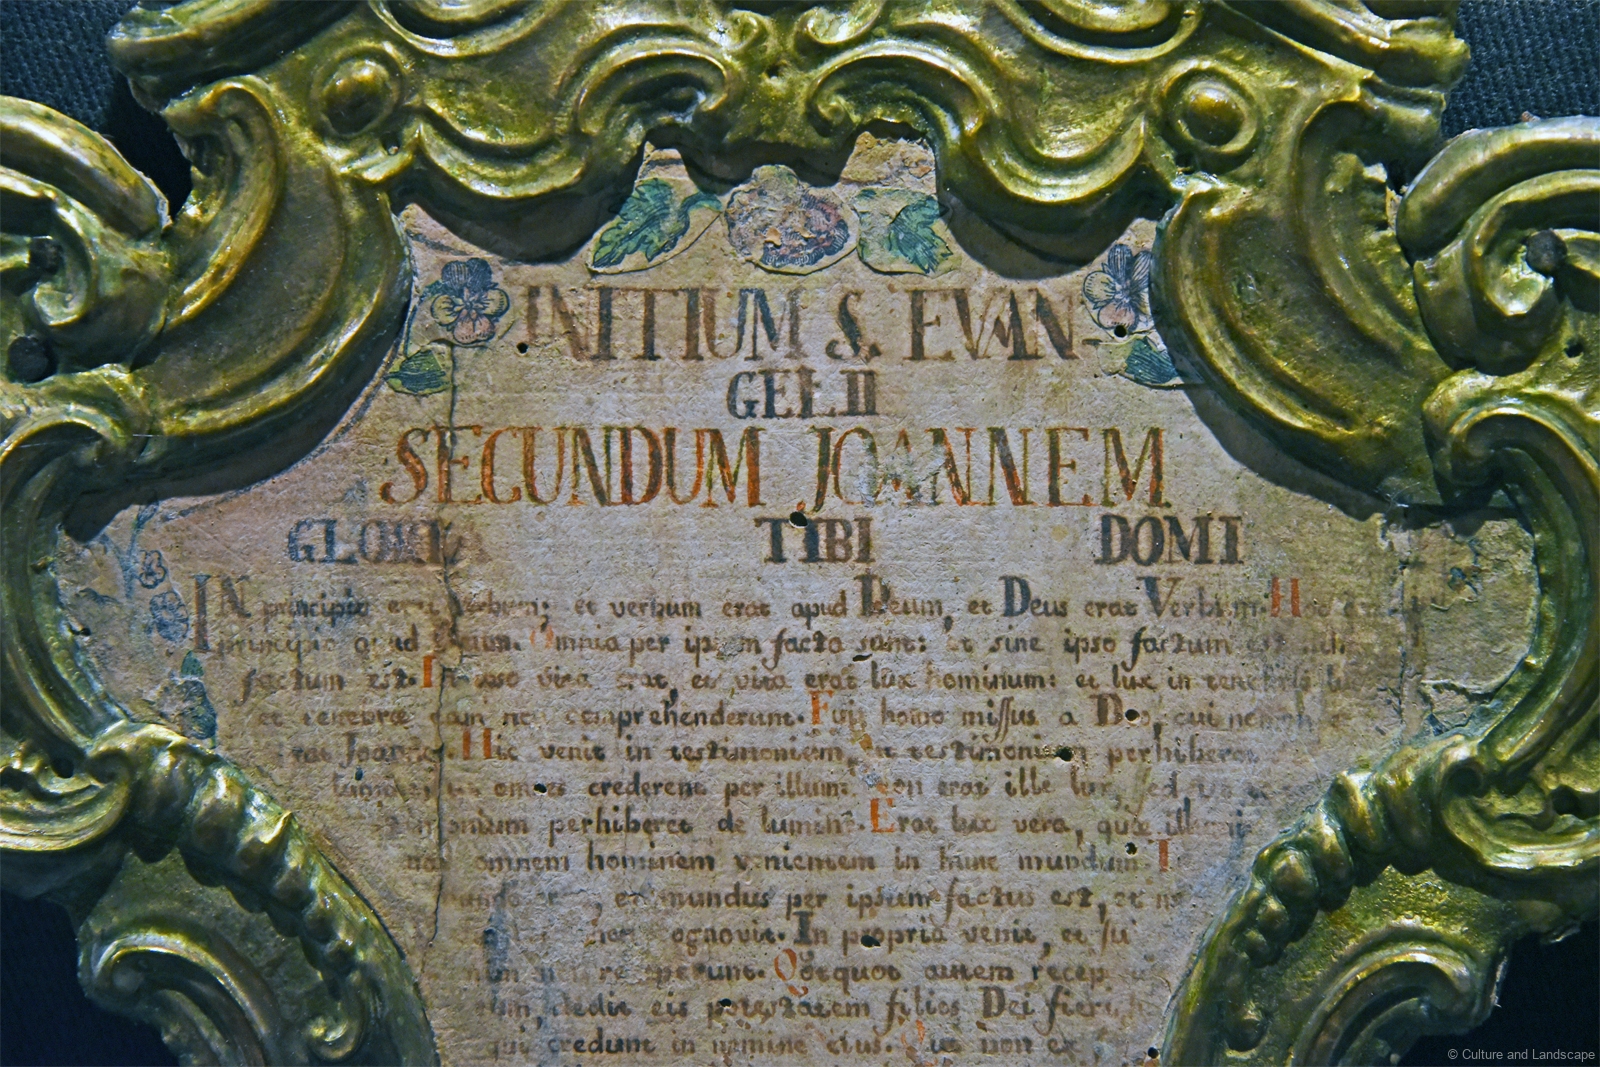 INITIUM S. EVAN-
GELII
SECUNDUM JOANNEM
GLORIA TIBI DOMI
IN principio erat Verbum; et verbum erat apud Deum, et Deus erat Verbum. Hoc
principio apud Deum. Omnia per ipsum facta sunt: et sine ipso factum est
factum est. In ipso vita erat, et vita erat lux hominum: et lux in tenebris
et tenebræ eam non comprehenderunt. Fuit homo missus a Deo, cui nomen
rat Joannes. Hic venit in testimonium, ut testimonium perhiberet
omnes crederent per illum. non erat ille lux, sed
perhiberet de lumine. Erat lux vera, quæ
omnem hominem venientem in hunc mundum. I
et mundus per ipsum factus est, et
cognovit. In propria venit, et sui
receperunt. Quotquot autem recep
eum, dedit eis potestatem filios Dei fieri
qui credunt in nomine eius. Qui non ex
© Culture and Landscape